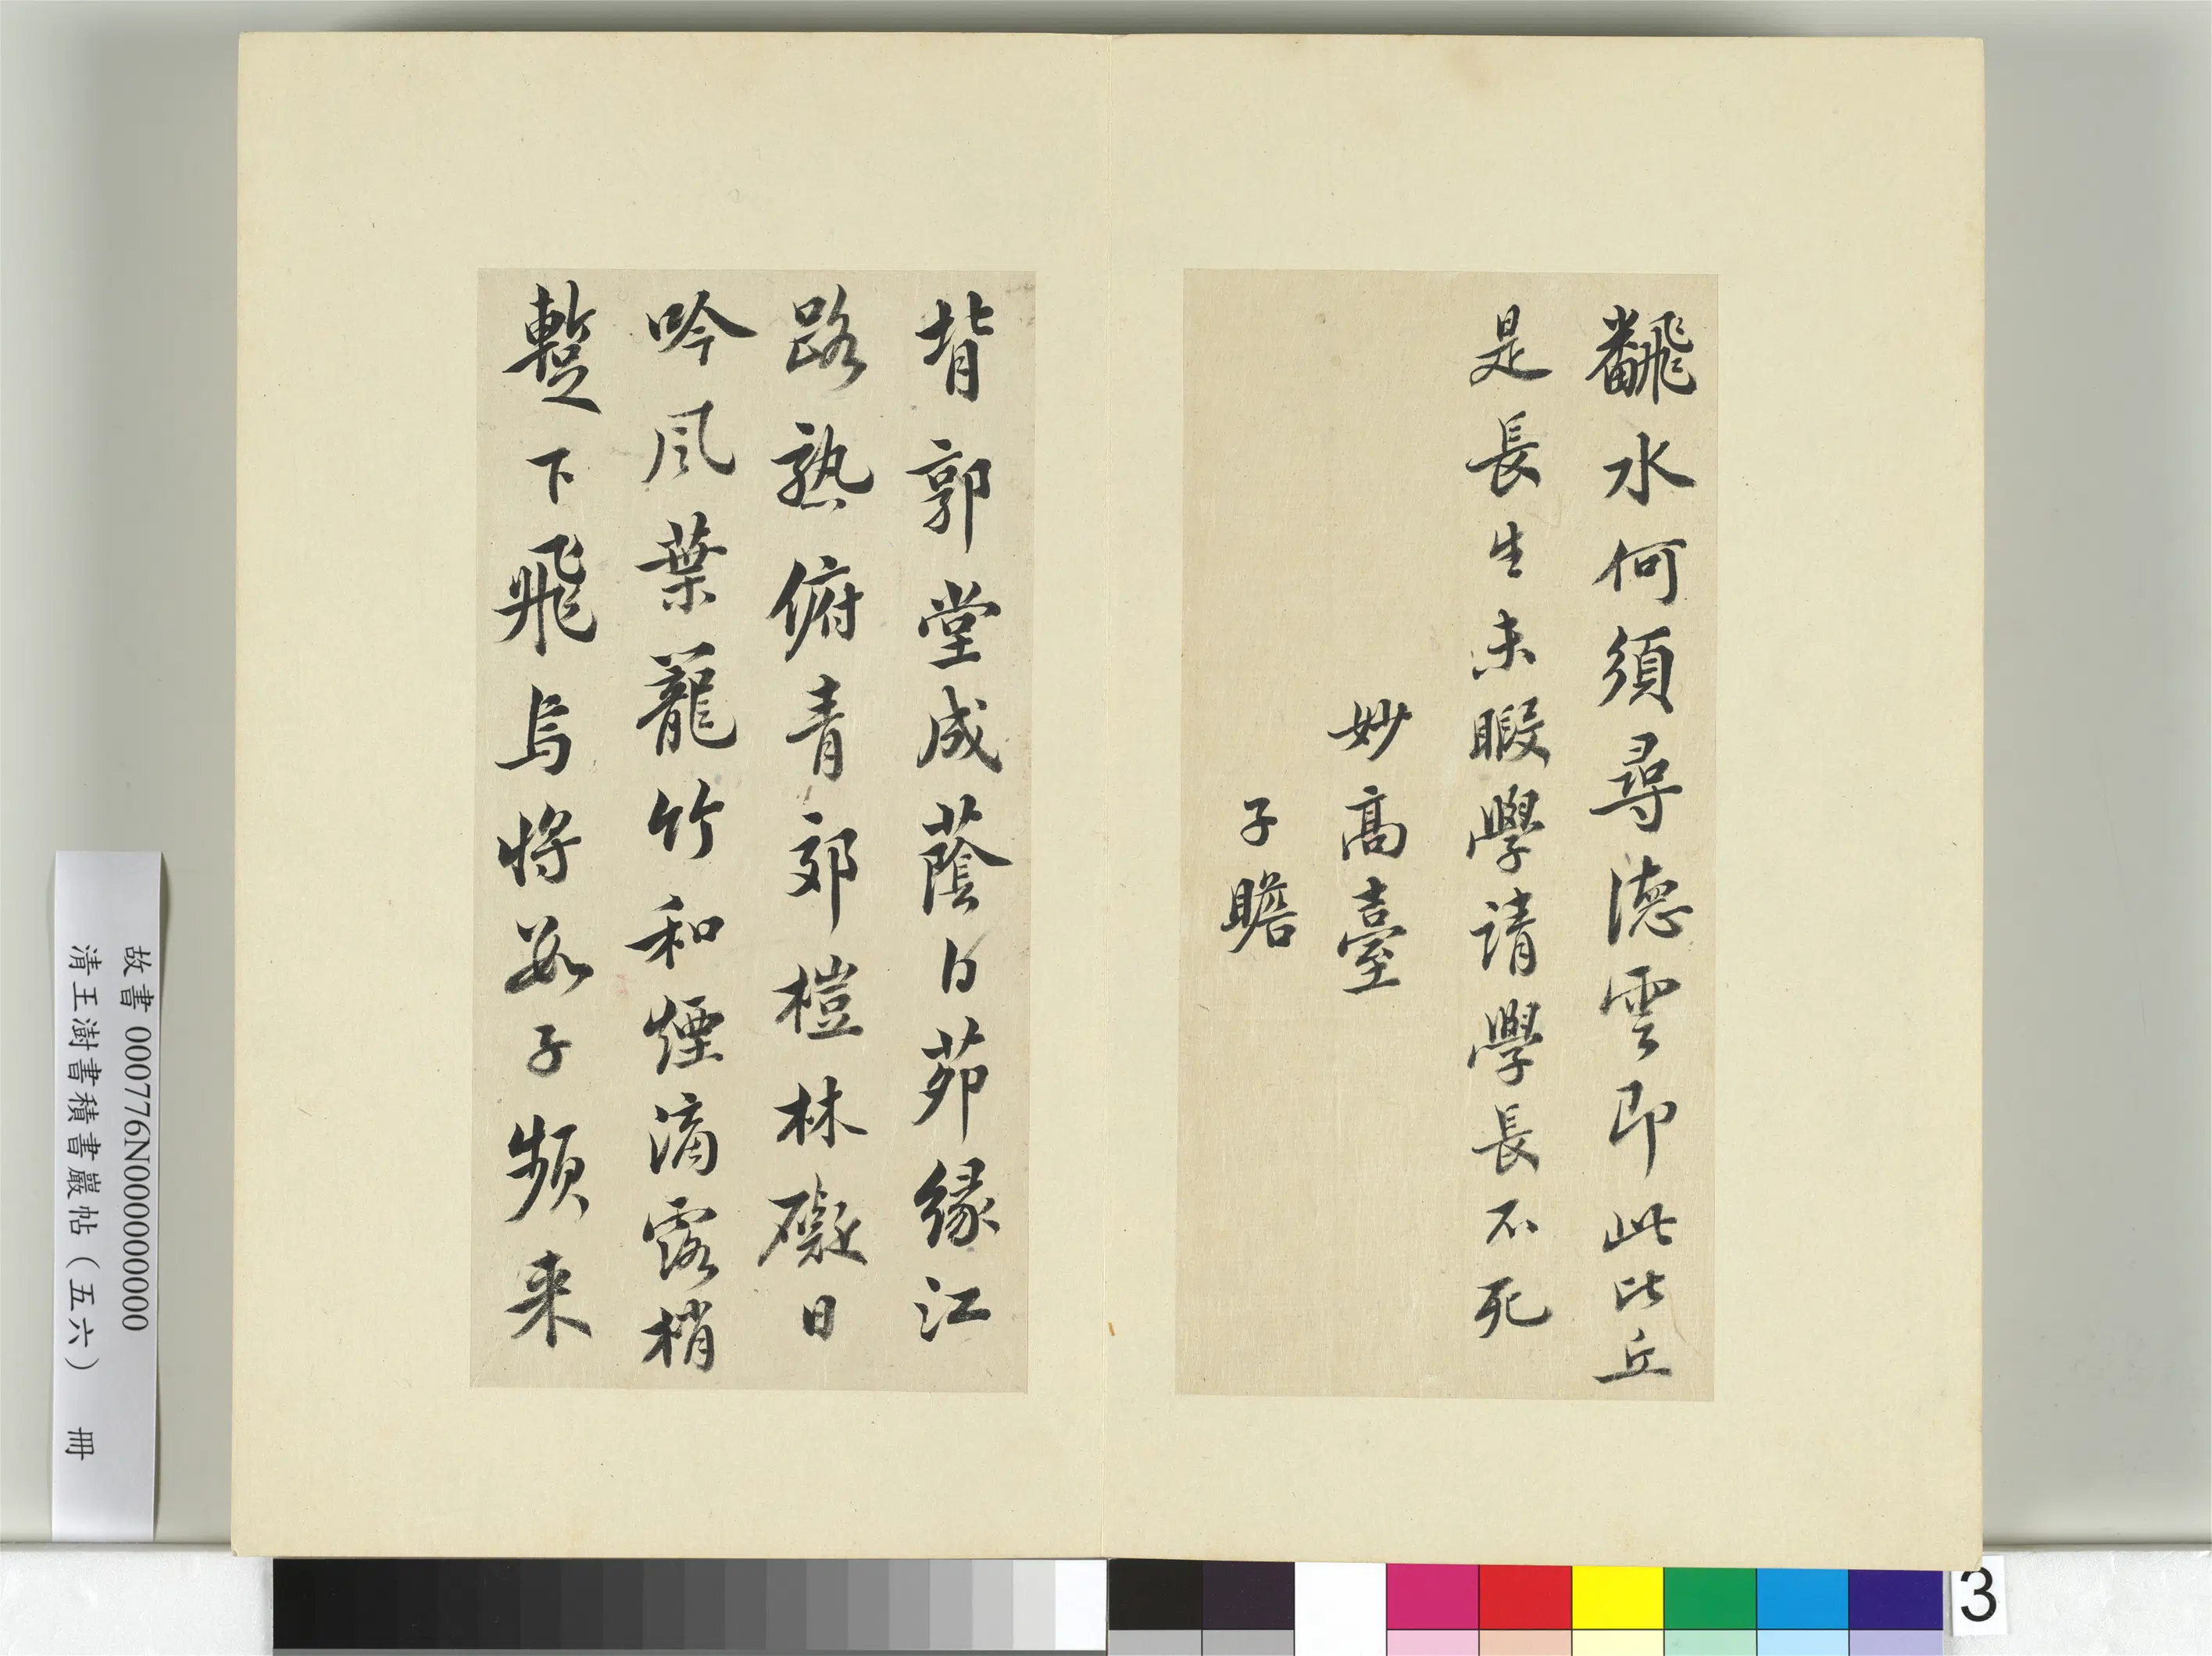 飜水何須尋德雲即此比丘
是長生未暇學請學長不死
妙高臺
子瞻
背郭堂成蔭白茆緣江
路熟俯青郊榿林礙日
吟風葉籠竹和煙滴露梢
暫下飛烏將數子頻来
故書 000776N000000000
清王澍書積書巖帖（五六） 冊
3